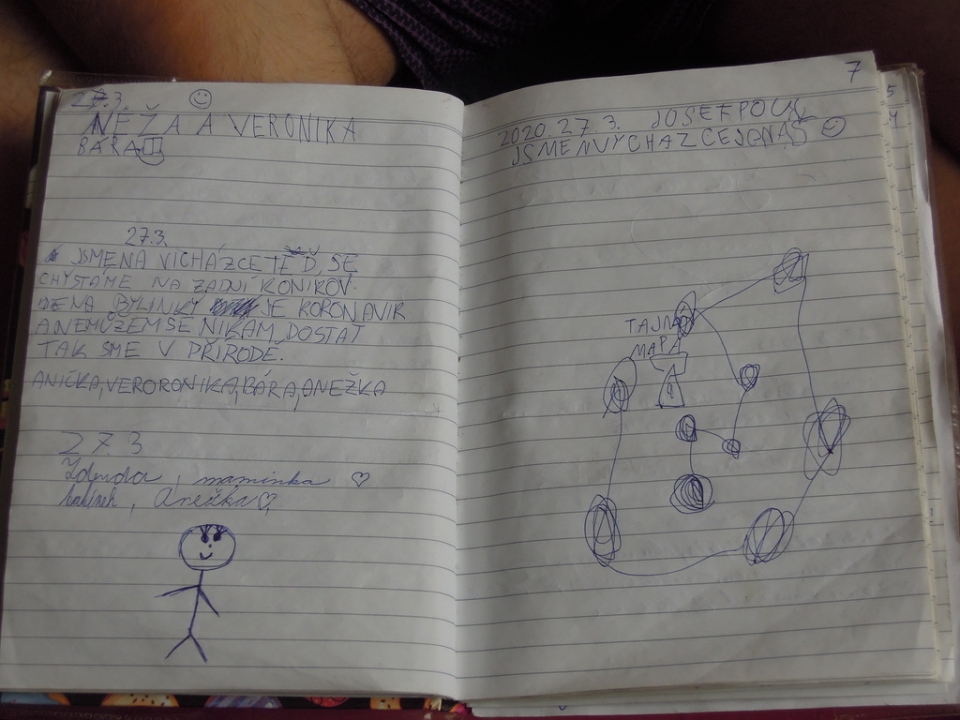 27.3.
NEŽA A VERONIKA
BÁRA
27.3.
JSMENA VICHÁZCE TĚĎ, SE
CHYSTÁME NA ZADNÍ KONÍKOV.
NA BYLINKY JE KORONAVIR
A NEMŮZEM SE NIKAM DOSTAT
TAK SME V PŘÍRODĚ.
ANIČKA, VERORONIKA, BÁRA, ANEŽKA
27.3
maminka ♡
, Anežka ♡
7
2020. 27. 3. JOSEF
JSME NVYCHAZCE
TAJNÁ
MAPA